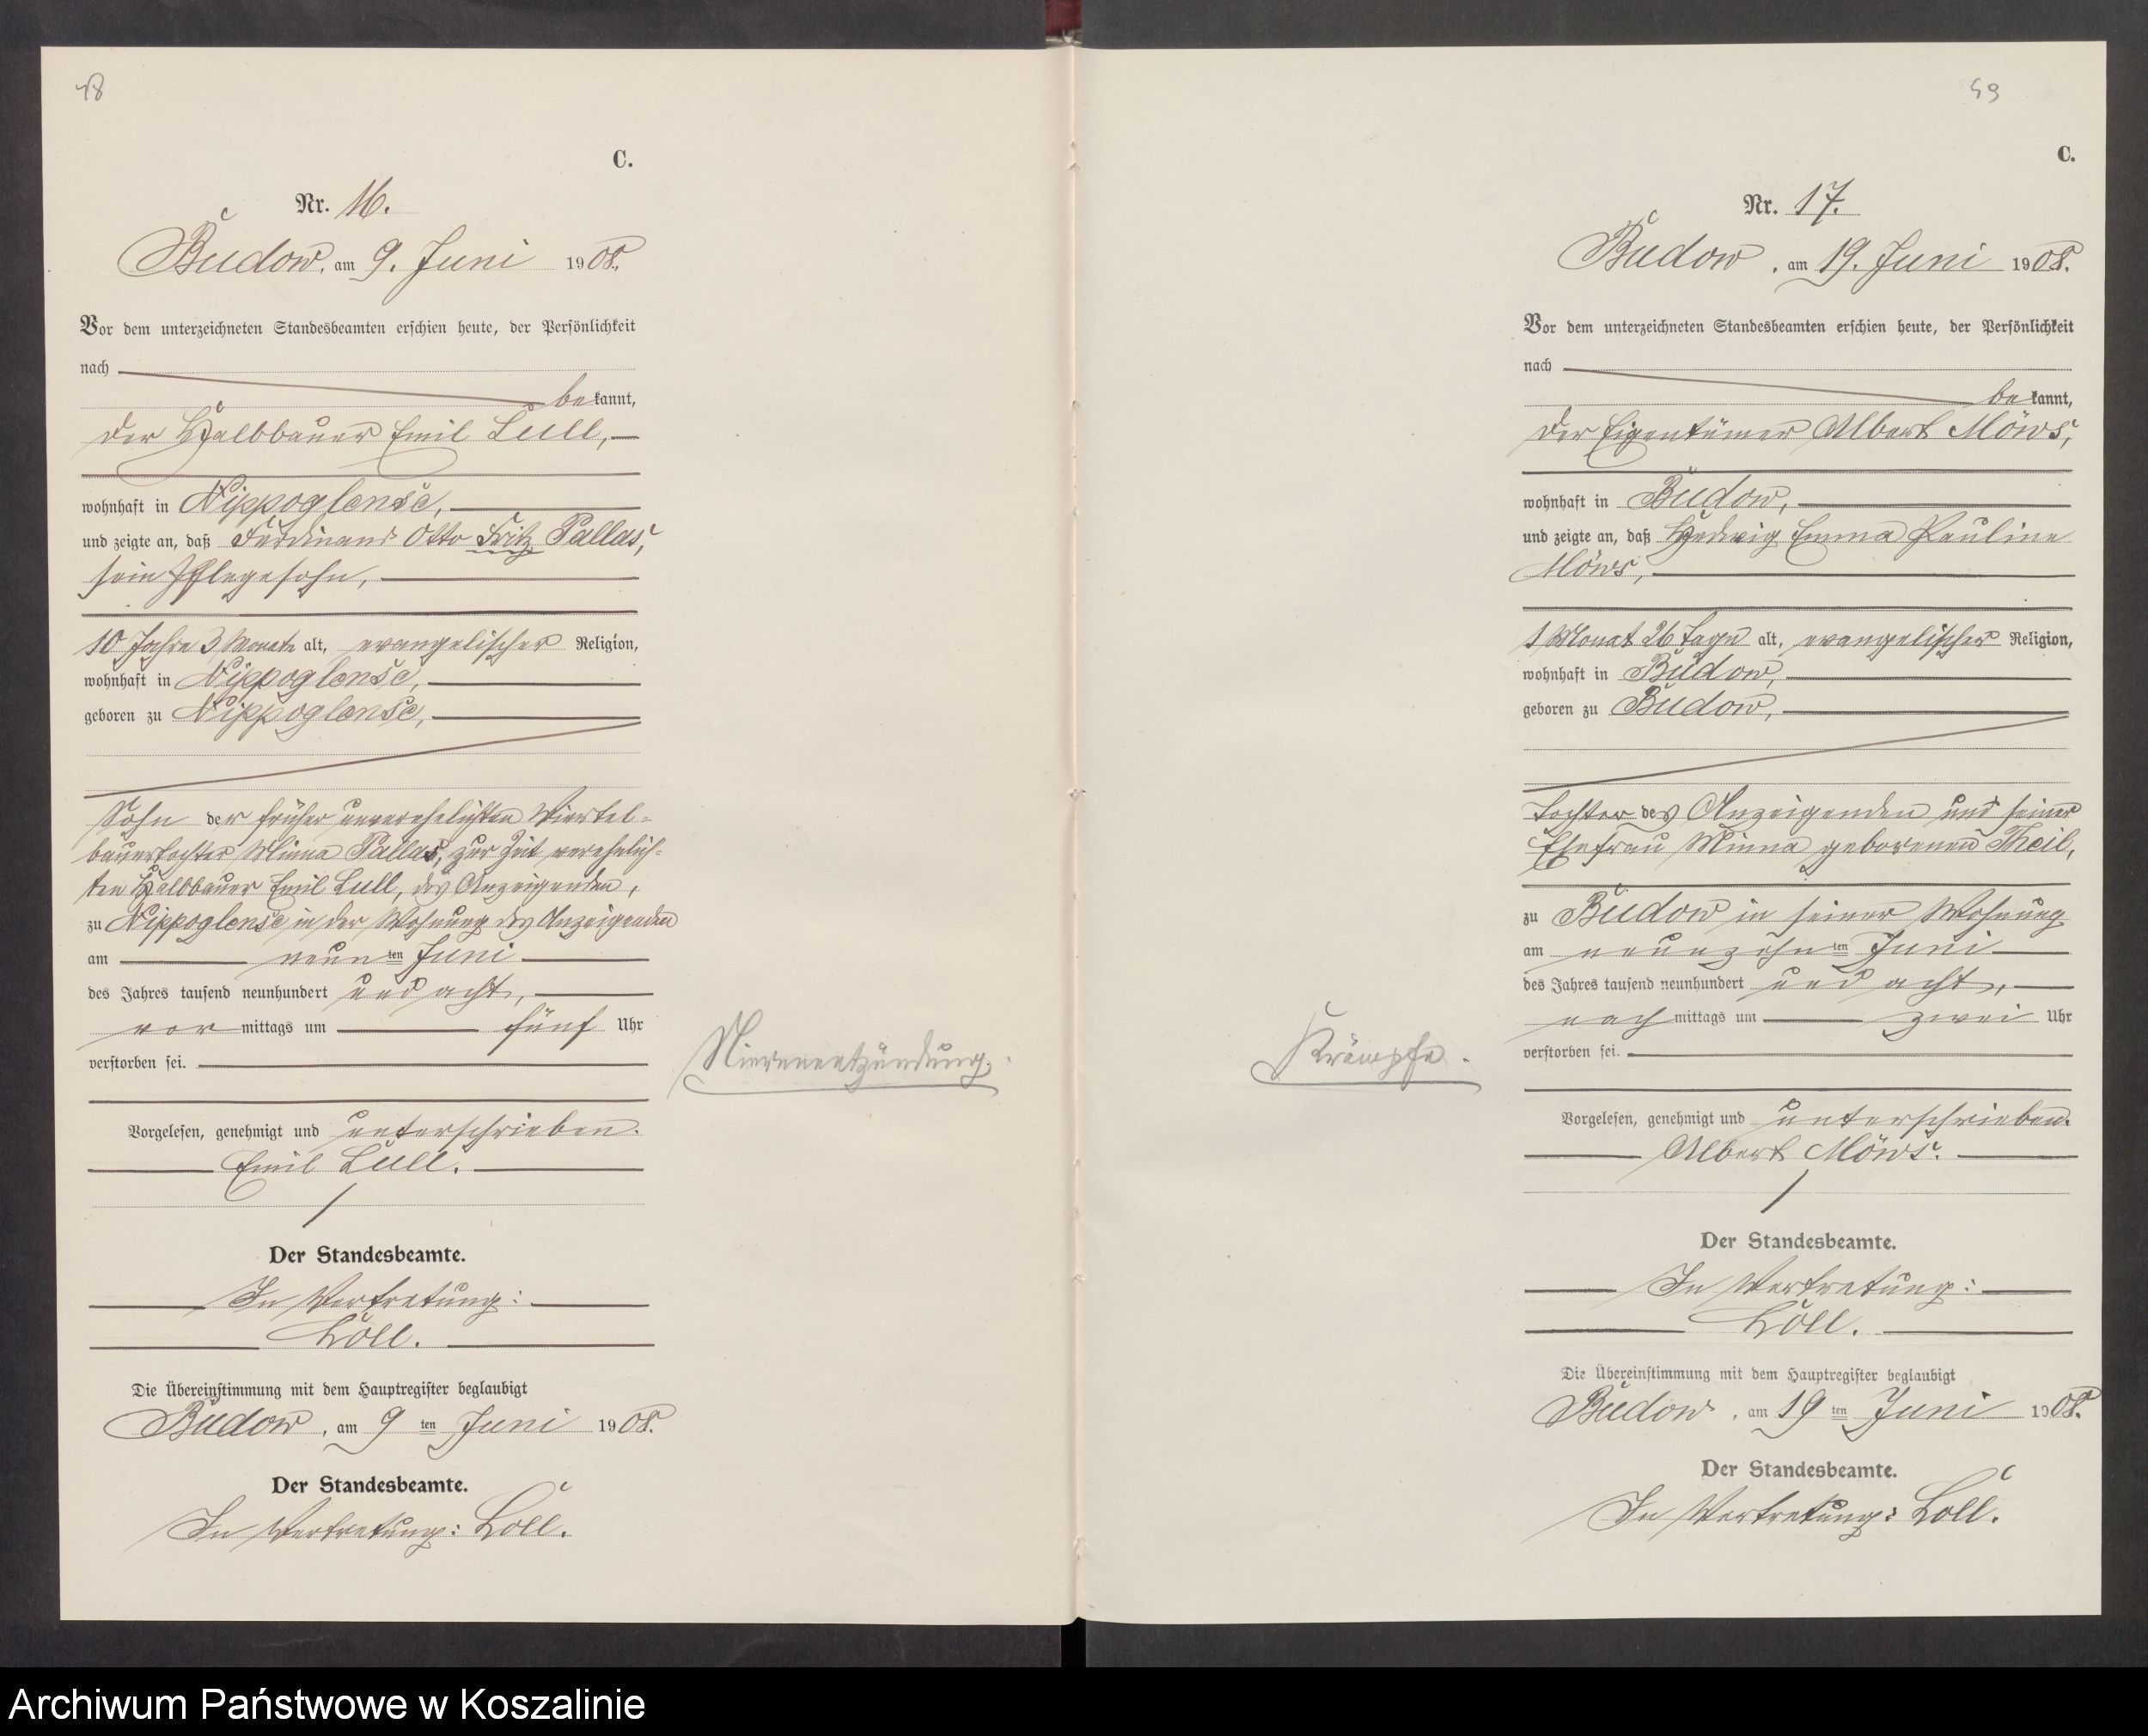 48
C.
Nr. 16.
Budow, am 9. Juni 1908.
Vor dem unterzeichneten Standesbeamten erschien heute, der Persönlichkeit
nach
bekannt,
der Halbbauer Emil Lull,
wohnhaft in Nippoglense,
und zeigte an, daß Ferdinand Otto Fritz Pallas,
sein Pflegesohn,
10 Jahre 3 Monate alt, evangelischer Religion,
wohnhaft in Nippoglense,
geboren zu Nippoglense,
Sohn der früher unverehelichten Viertel-
bauertochter Minna Pallas, zur Zeit verehelich-
ten Halbbauer Emil Lull, des Anzeigenden,
zu Nippoglense in der Wohnung des Anzeigenden
am neunten Juni
des Jahres tausend neunhundert und acht,
vormittags um fünf Uhr
verstorben sei.
Nierenentzündung.
Vorgelesen, genehmigt und unterschrieben.
Emil Lull.
Der Standesbeamte.
In Vertretung:
Loll.
Die Übereinstimmung mit dem Hauptregister beglaubigt
Budow, am 9 ten Juni 1908.
Der Standesbeamte.
In Vertretung: Loll.
49
C.
Nr. 17.
Budow, am 19. Juni 1908.
Vor dem unterzeichneten Standesbeamten erschien heute, der Persönlichkeit
nach
bekannt,
der Eigentümer Albert Möws,
wohnhaft in Budow,
und zeigte an, daß Hedwig Emma Pauline
Möws,
1 Monat 26 Tage alt, evangelischer Religion,
wohnhaft in Budow,
geboren zu Budow,
Tochter des Anzeigenden und seiner
Ehefrau Minna geborenen Theil,
zu Budow in seiner Wohnung
am neunzehnten Juni
des Jahres tausend neunhundert und acht,
nachmittags um zwei Uhr
verstorben sei.
Krämpfe.
Vorgelesen, genehmigt und unterschrieben.
Albert Möws.
Der Standesbeamte.
In Vertretung:
Loll.
Die Übereinstimmung mit dem Hauptregister beglaubigt
Budow, am 19 ten Juni 1908.
Der Standesbeamte.
In Vertretung: Loll.
Archiwum Państwowe w Koszalinie